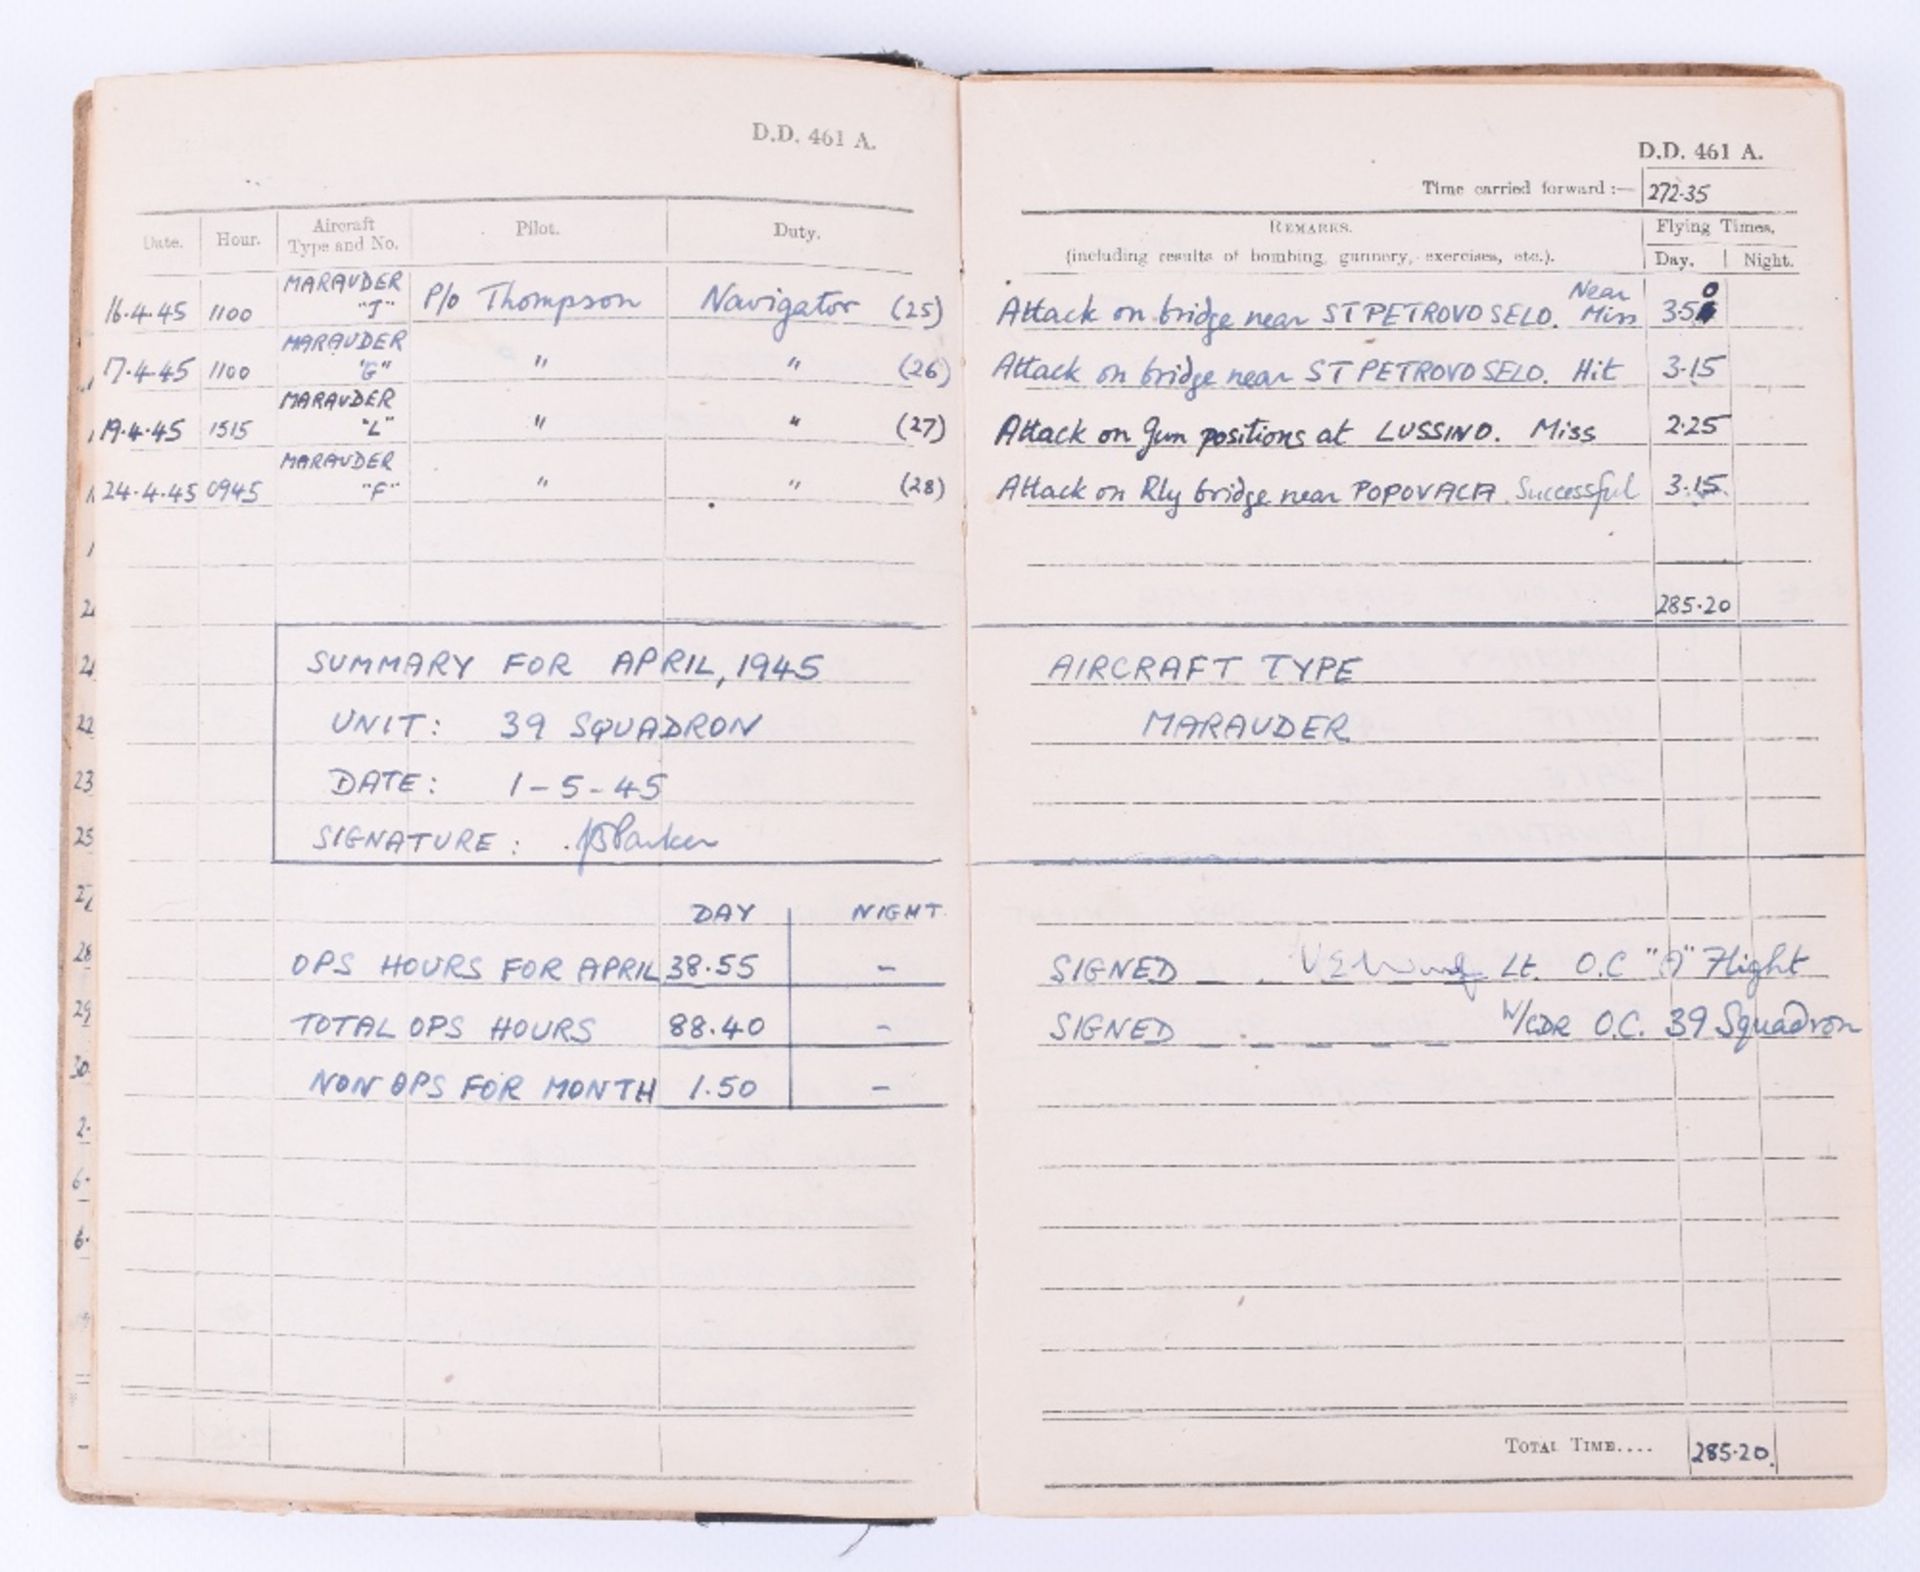 D.D. 461 A.
Date. Hour. Aircraft Type and No. Pilot. Duty.
16.4.45 1100 MARAUDER "J" P/o Thompson Navigator (25)
17.4.45 1100 MARAUDER "G" " " (26)
19.4.45 1515 MARAUDER "L" " " (27)
24.4.45 0945 MARAUDER "F" " " (28)
SUMMARY FOR APRIL, 1945
UNIT: 39 SQUADRON
DATE: 1-5-45
SIGNATURE: Parker
DAY NIGHT
OPS HOURS FOR APRIL 38.55 -
TOTAL OPS HOURS 88.40 -
NON OPS FOR MONTH 1.50 -
D.D. 461 A.
Time carried forward:— 272.35
REMARKS. Flying Times.
(including results of bombing, gunnery, exercises, etc.). Day. Night.
Attack on bridge near ST PETROVO SELO. Near Miss 3.50
Attack on bridge near ST PETROVO SELO. Hit 3.15
Attack on Gun positions at LUSSINO. Miss 2.25
Attack on Rly bridge near POPOVACA. Successful 3.15
285.20
AIRCRAFT TYPE
MARAUDER
SIGNED Lt. O.C "A" Flight
SIGNED _ _ _ _ _ W/CDR O.C. 39 Squadron
TOTAL TIME.... 285.20.